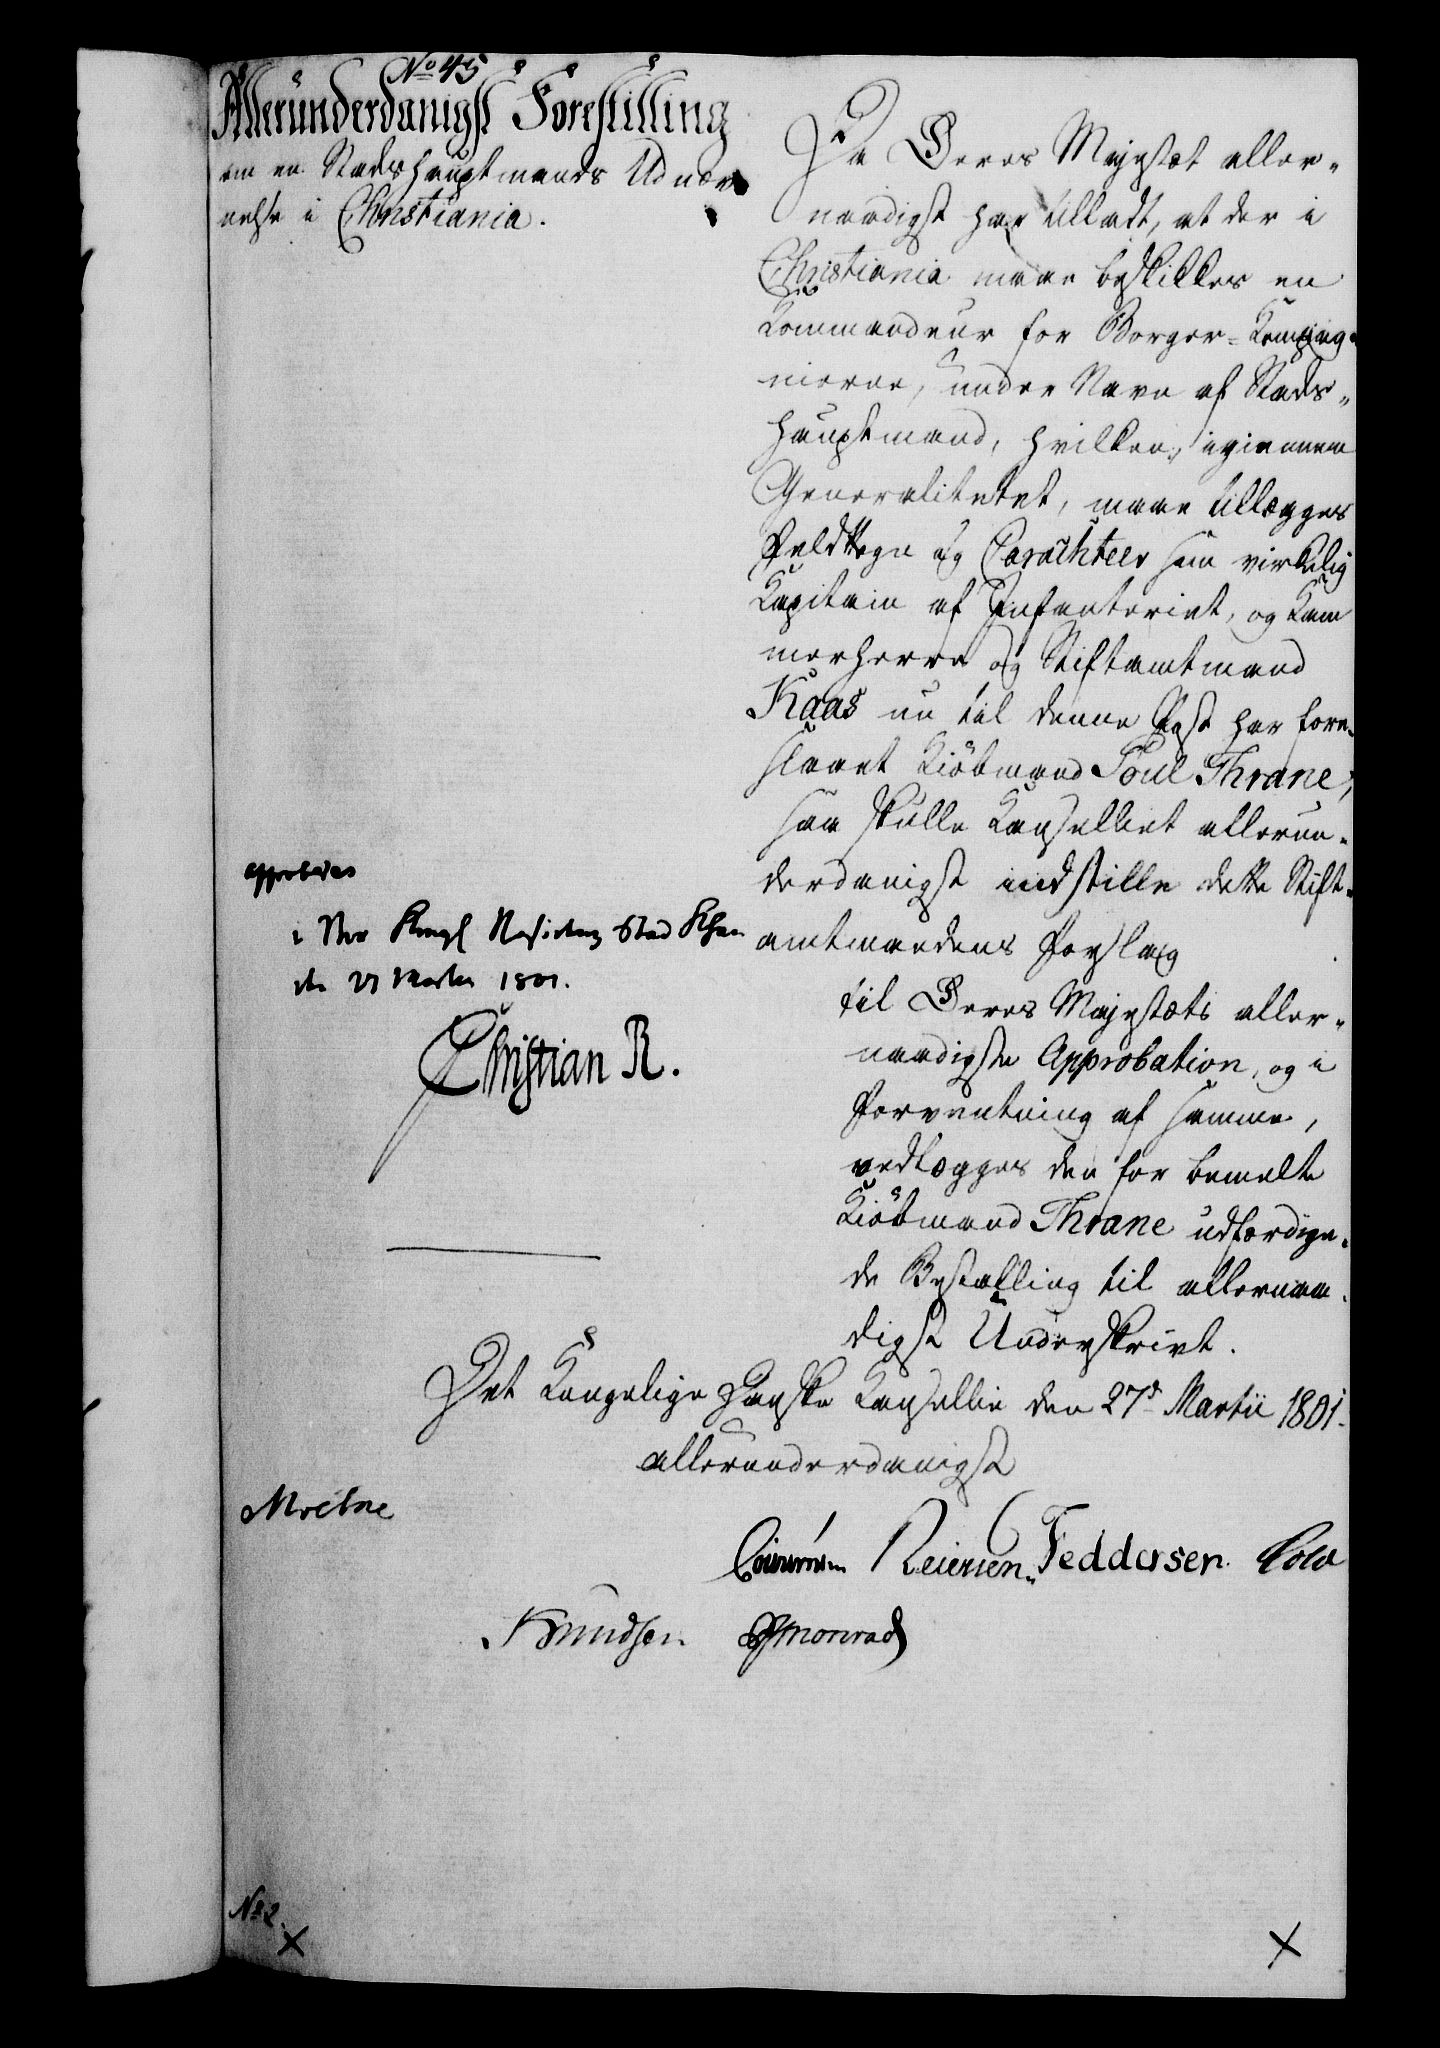 No 45
Allerunderdanigst Forestilling
om en Stadshauptmands Udnæv
nelse i Christiania.
Da Deres Majestæt aller-
naadigst har tilladt, at der i
Christiania maae beskikkes en
Kommandeur for Borger-Kompag-
nierne, under Navn af Stads-
hauptmand, hvilken, igiennem
Generalitetet, maae tillægges
Feldttegn og Carachteer som virkelig
Kapitain af Infanteriet, og Kam
merherre og Stiftamtmand
Kaas nu til denne Post har fore-
slaaet Kiöbmand Poul Thrane;
saa skulle Kanselliet allerun-
derdanigst indstille dette Stift-
amtmandens Forslag
til Deres Majestæts aller-
naadigste Approbation, og i
Forventning af samme,
vedlægges den for bemelte
Kiöbmand Thrane udfærdige-
de Bestalling til allernaa-
digst Underskrivt.
approberes
i Vor Kongl Residentz Stad Khavn
den 27 Martii 1801.
Christian R.
Det Kongelige Danske Kansellie den 27d Martii 1801.
allerunderdanigst
Moltke
Reiersen. Feddersen. Cold
Knudsen Monrad
No 2.